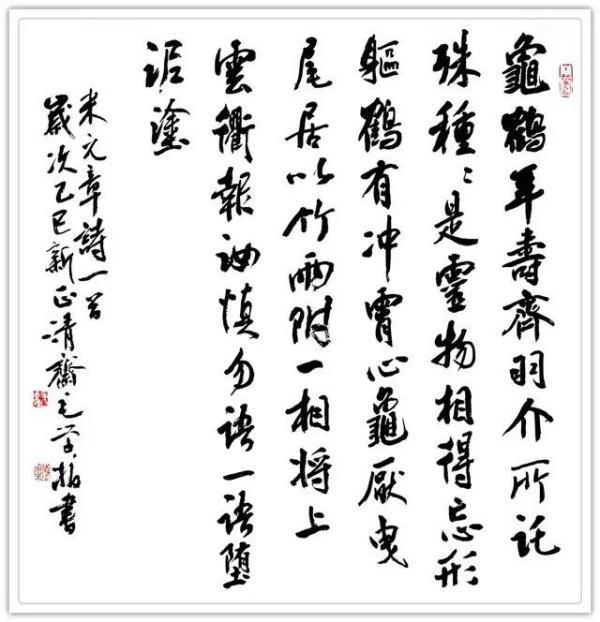 龜鶴年壽齊羽介所託
殊種種是靈物相得忘形
軀鶴有冲霄心龜厭曳
尾居以竹兩附一相將上
雲衢報汝慎勿語一語墮
泥塗
米元章詩一首
歲次乙巳新正清齋之學柏書